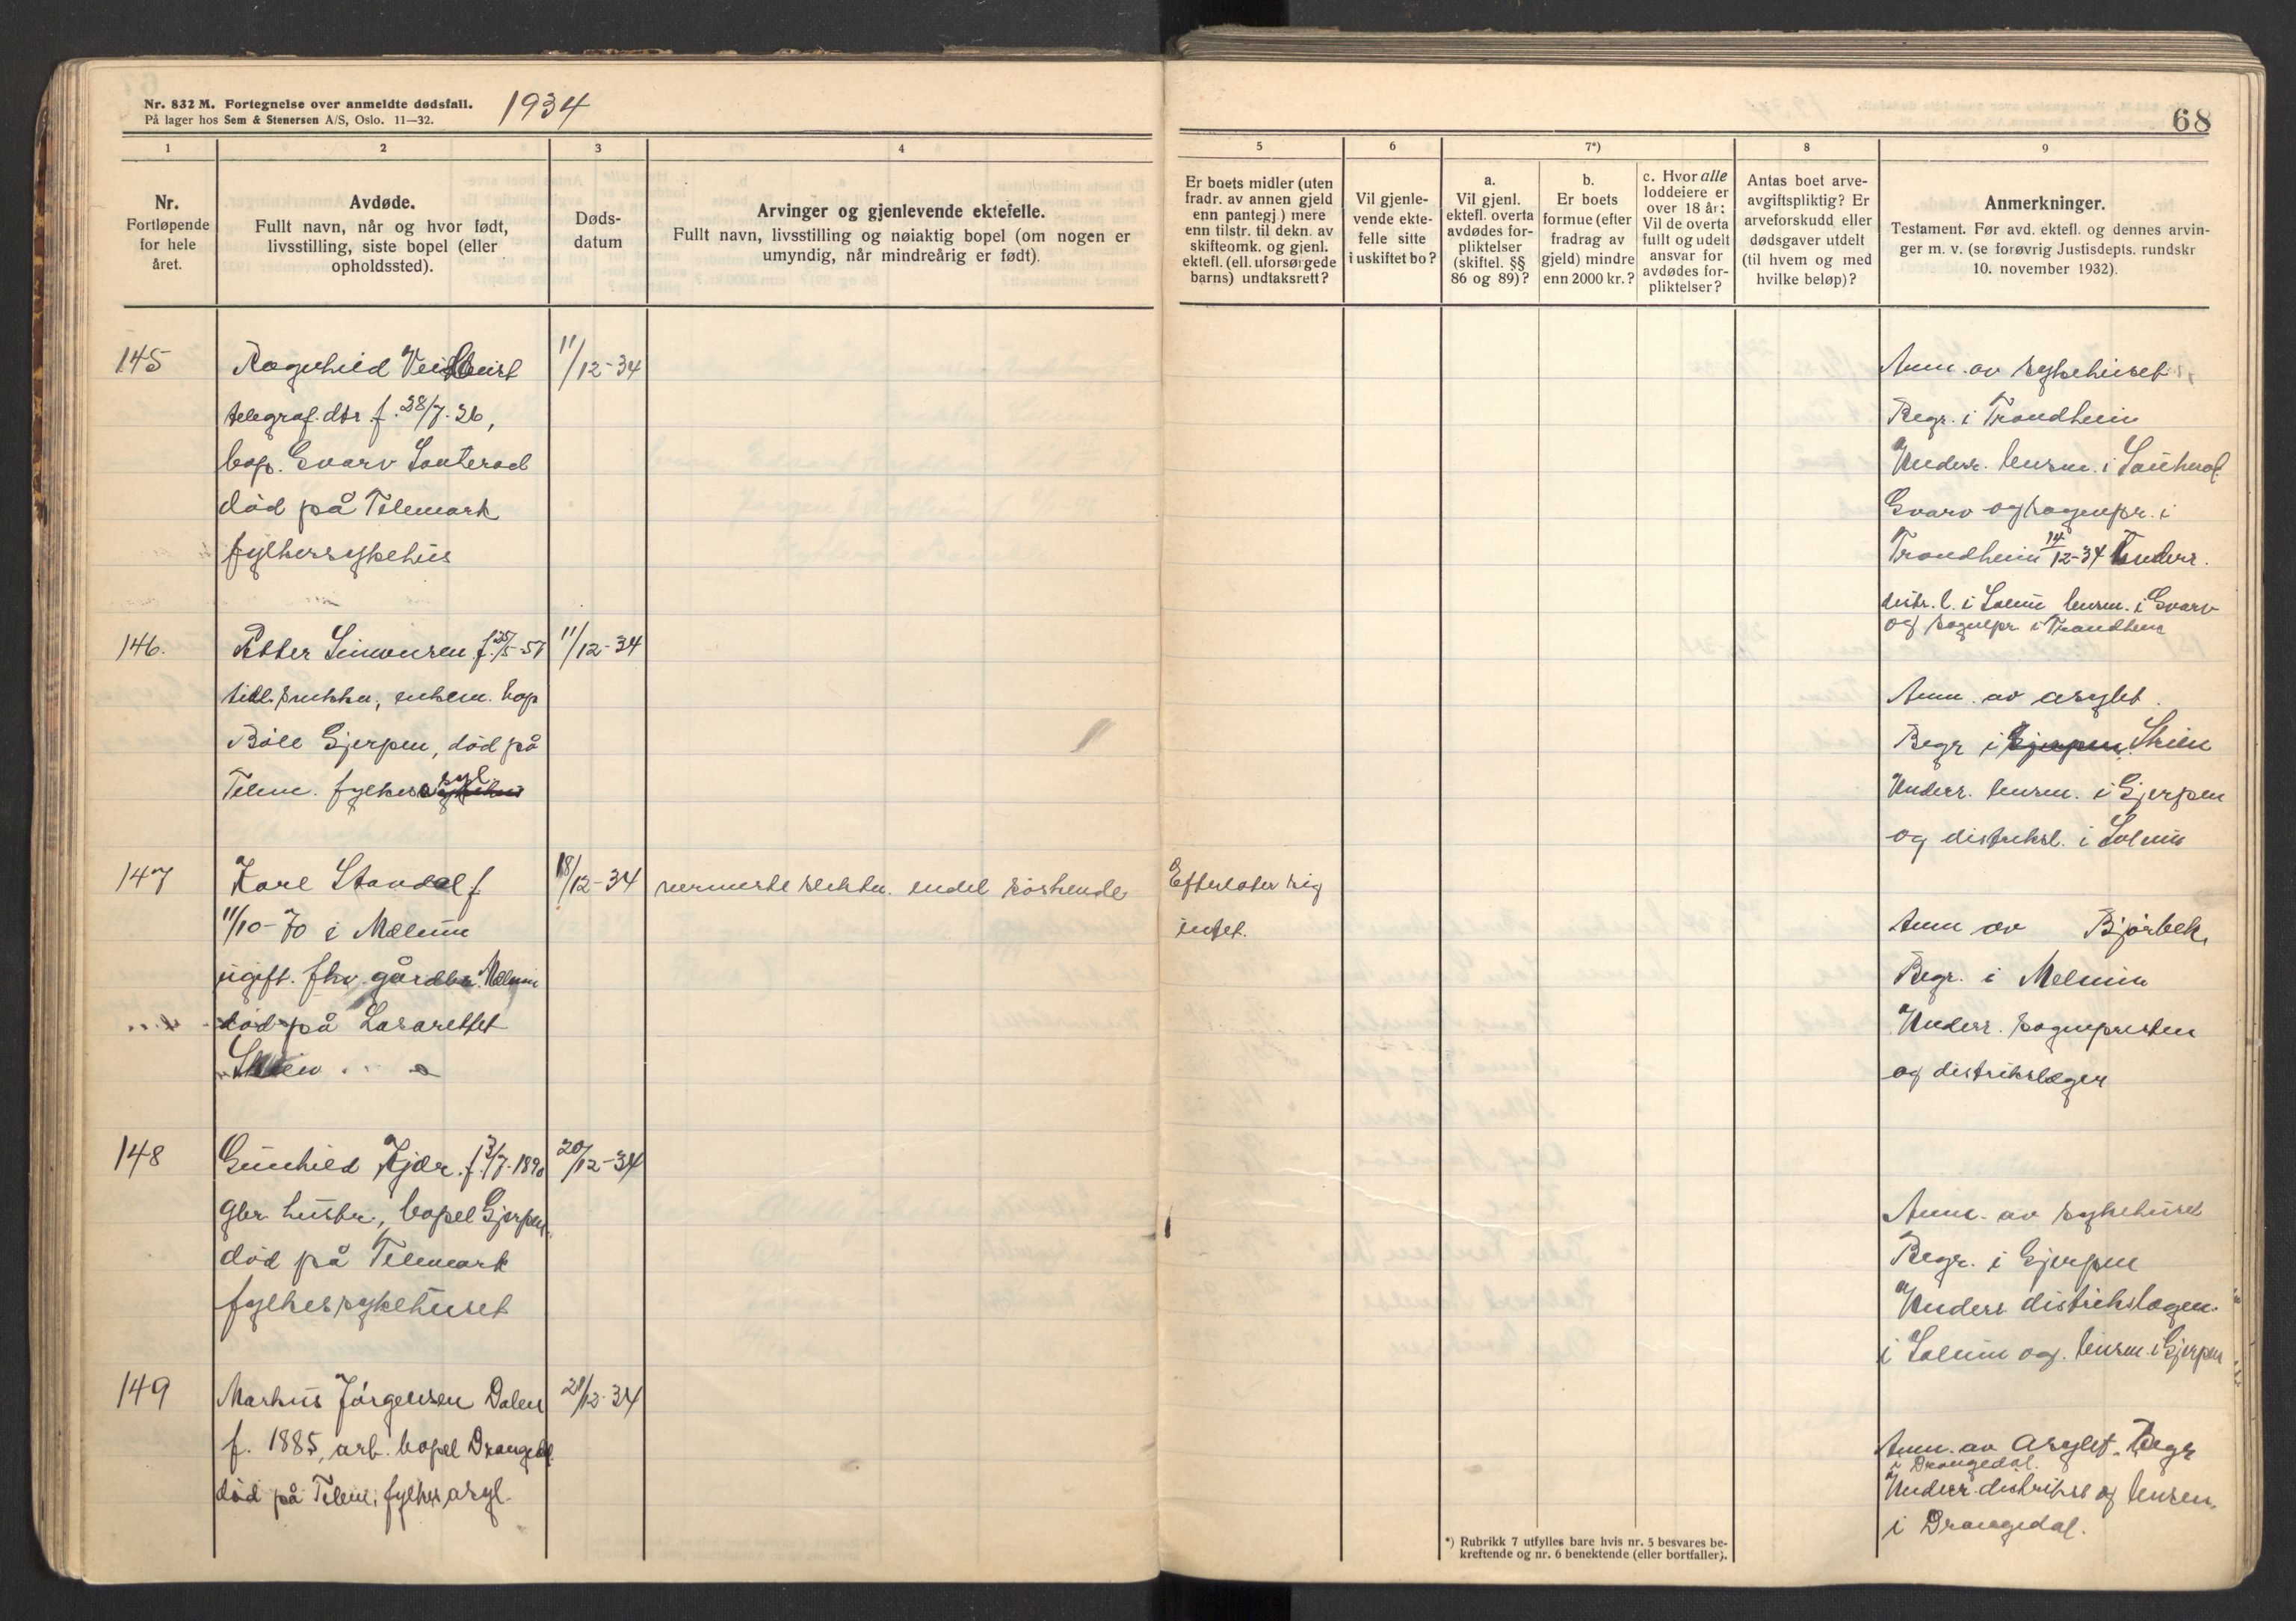 Nr. 832 M. Fortegnelse over anmeldte dødsfall.
På lager hos Sem & Stenersen A/S, Oslo. 11—32.
1934
68
1
2
3
4
5
6
7*)
8
9
Nr.
Fortløpende
for hele
året.
Avdøde.
Fullt navn, når og hvor født,
livsstilling, siste bopel (eller
opholdssted).
Døds-
datum
Arvinger og gjenlevende ektefelle.
Fullt navn, livsstilling og nøiaktig bopel (om nogen er
umyndig, når mindreårig er født).
Er boets midler (uten
fradr. av annen gjeld
enn pantegj.) mere
enn tilstr. til dekn. av
skifteomk. og gjenl.
ektefl. (ell. uforsørgede
barns) undtaksrett?
Vil gjenle-
vende ekte-
felle sitte
i uskiftet bo?
a.
Vil gjenl.
ektefl. overta
avdødes for-
pliktelser
(skiftel. §§
86 og 89)?
b.
Er boets
formue (efter
fradrag av
gjeld) mindre
enn 2000 kr.?
c. Hvor alle
loddeiere er
over 18 år:
Vil de overta
fullt og udelt
ansvar for
avdødes for-
pliktelser?
Antas boet arve-
avgiftspliktig? Er
arveforskudd eller
dødsgaver utdelt
(til hvem og med
hvilke beløp)?
Anmerkninger.
Testament. Før avd. ektefl. og dennes arvin-
ger m. v. (se forøvrig Justisdepts. rundskr
10. november 1932).
145
Ragnhild
11/12-34
telegraf. dtr f. 28/7. 26,
bop. Gvarv Sauherad
død på Telemark
fylkessykehus
Anm. av sykehuset
Begr. i Trondheim
Underr. lensm. i Sauherad
Gvarv og sognepr. i
Trondheim 14/12-34 Underr.
distr. l. i Solum lensm. i Gvarv
og sognepr i Trondheim
146.
Petter Simonsen f. 25/5-57
11/12-34
tidl. snekker, enkem. bop
Bøle Gjerpen, død på
Telem. fylkes asyl
Anm. av asylet.
Begr i Gjerpen Skien
Underr. lensm. i Gjerpen
og distriksl. i Solum
147
Karl Standal f.
18/12-34
nermeste slektn. endel søskende
Efterlater sig
11/10-70 i Melum
intet.
ugift. fhv. gårdbr. Melum
død på Lasarettet
Skien
Anm av Bjørbek,
Begr. i Melum
Underr. sognepresten
og distrikslæger
148
Gunhild Kjær. f. 3/7. 1890
20/12-34
gbr. hustr., bopel Gjerpen.
død på Telemark
fylkessykehuset
Anm. av sykehuset
Begr. i Gjerpen
Underr distrikslægen.
i Solum og. lensm. i Gjerpen
149
Markus Jørgensen Dalen
21/12-34
f. 1885, arb. bopel Drangedal
død på Telem. fylkes asyl.
Anm. av Asylet. Begr
i Drangedal.
Underr. distriksl og lensm.
i Drangedal.
*) Rubrikk 7 utfylles bare hvis nr. 5 besvares be-
kreftende og nr. 6 benektende (eller bortfaller).